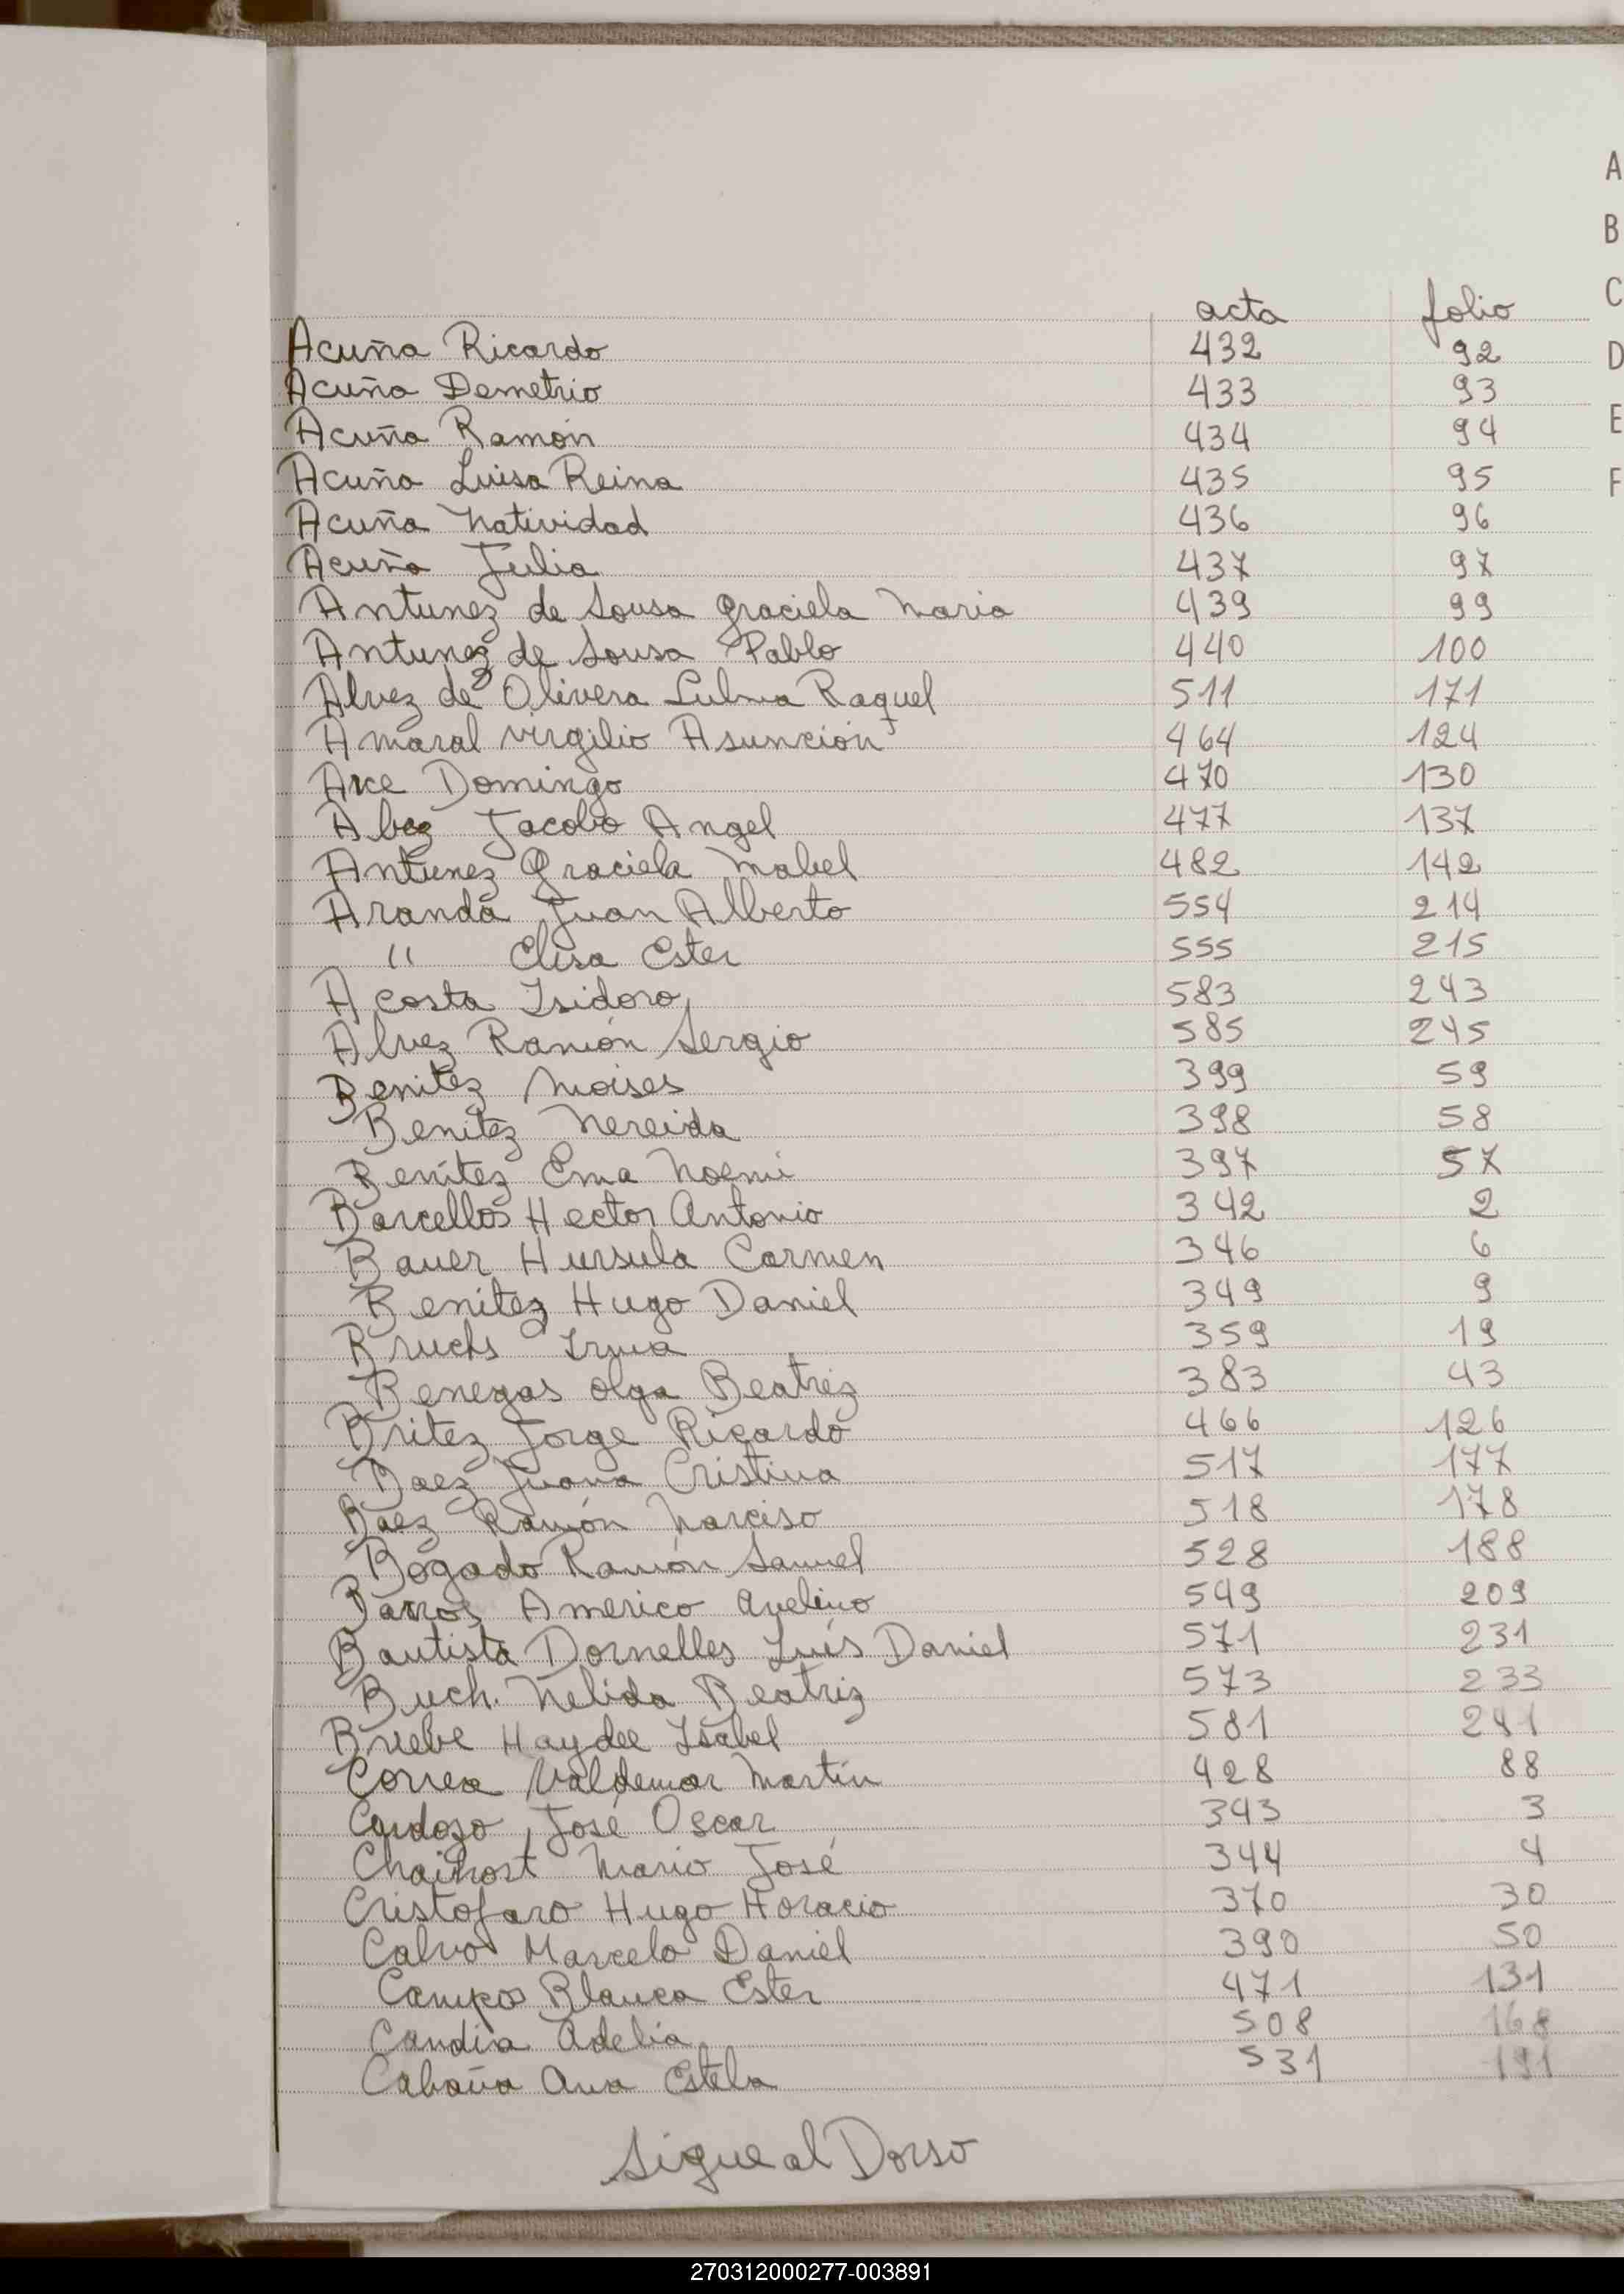 A
B
C
D
E
F
acta folio
Acuña Ricardo 432 92
Acuña Demetrio 433 93
Acuña Ramón 434 94
Acuña Luisa Reina 435 95
Acuña Natividad 436 96
Acuña Julia 437 97
Antunez de Sousa Graciela Maria 439 99
Antunez de Sousa Pablo 440 100
Alvez de Olivera Raquel 511 171
Amaral Virgilio Asunción 464 124
Arce Domingo 470 130
Jacobo Angel 477 137
Antunez Graciela Mabel 482 142
Aranda Juan Alberto 554 214
" Elisa Ester 555 215
Acosta Isidoro 583 243
Alvez Ramón Sergio 585 245
Benitez Moises 399 59
Benitez Nereida 398 58
Benítez Ema Noemi 397 57
Barcellos Hector Antonio 342 2
Bauer Hursula Carmen 346 6
Benitez Hugo Daniel 349 9
Bruchs Irma 359 19
Benegas Olga Beatriz 383 43
Britez Jorge Ricardo 466 126
Baez Juana Cristina 517 177
Baez Ramón Narciso 518 178
Bogado Ramón Samuel 528 188
Barros Americo Avelino 549 209
Bautista Dornelles Luis Daniel 571 231
Buch. Nelida Beatriz 573 233
Bruebe Haydee Isabel 581 241
Correa Valdemar Martin 428 88
Cardozo José Oscar 343 3
Mario José 344 4
Cristofaro Hugo Horacio 370 30
Calvo Marcelo Daniel 390 50
Campos Blanca Ester 471 131
Candia Adelia 508 168
Cabaña Ana Estela 531 191
Sigue al Dorso
270312000277-003891